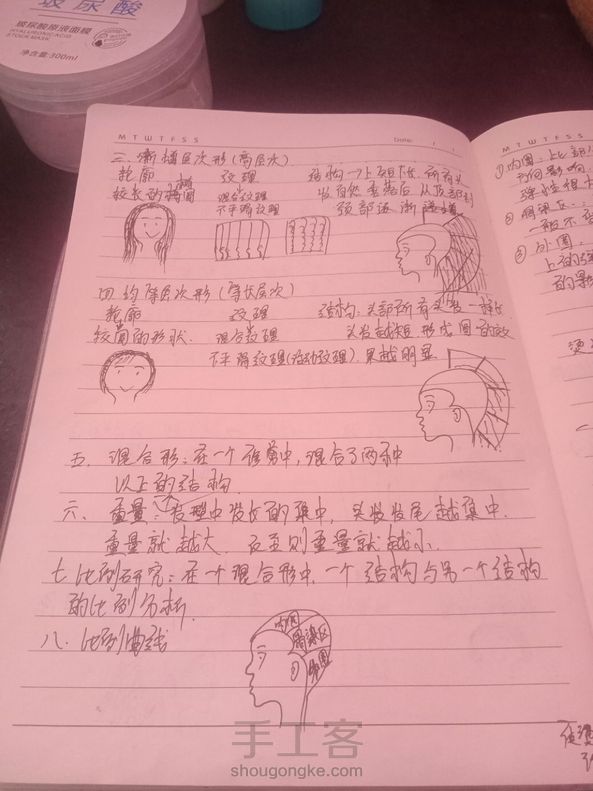 玻尿酸
玻尿酸原液面膜
HYALURONIC ACID
STOCK MASK
净含量:300ml
M T W T F S S
Date: / /
M T W T F S S
三、渐增层次形(高层次)
轮廓 纹理 结构→上短下长 所有头
较长的椭圆 混合纹理 发自然垂落后 从顶部到
不平滑纹理 颈部逐渐递增
四 均等层次形(等长层次)
轮廓 纹理 结构:头部所有头发一样长
较圆的形状 混合纹理 头发越短.形成圆的效
不平滑纹理(活动纹理) 果越明显
五、混合形:在一个信息中,混合了两种
以上的结构
六、重量:发型中发长的集中,头发发尾越集中.
重量就越大.反至则重量就越小.
七 比例研究:在一个混合形中.一个结构与另一个结构
的比例分析.
八、比例曲线
内圆
外圆
①内圆:
②
一般不
③外圆:
上的
的
烫
手工客
shougongke.com